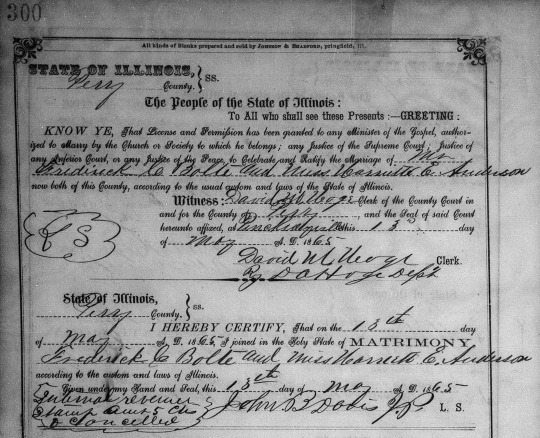 300
All kinds of Blanks prepared and sold by Johnson & Bradford, pringfield, Ill.
STATE OF ILLINOIS,
Perry County. } ss.
The People of the State of Illinois:
To All who shall see these Presents:—GREETING:
KNOW YE, That License and Permission has been granted to any Minister of the Gospel, author-
ized to Marry by the Church or Society to which he belongs; any Justice of the Supreme Court; Justice of
any Inferior Court, or any Justice of the Peace, to Celebrate and Ratify the Marriage of Mr
Frederick C Bolte and Miss Harriett E. Anderson
now both of this County, according to the usual custom and laws of the State of Illinois.
Witness: David M Hoge Clerk of the County Court in
and for the County of Perry, and the Seal of said Court
hereunto affixed, at Pinckneyville this 13 day
L S
of May A. D. 1865
David M Hoge Clerk.
By D C Hoge Dept
State of Illinois,
Perry County. } ss.
I HEREBY CERTIFY, That on the 13th day
of May A. D. 1865, I joined in the Holy State of MATRIMONY
Frederick C Bolte and Miss Harriett E. Anderson
according to the custom and laws of Illinois.
Given under my Hand and Seal, this 13th day of May A. D. 1865
Internal revenue
Stamp Amt 5 Cts
& Cancelled
John B Davis J.P. L. S.